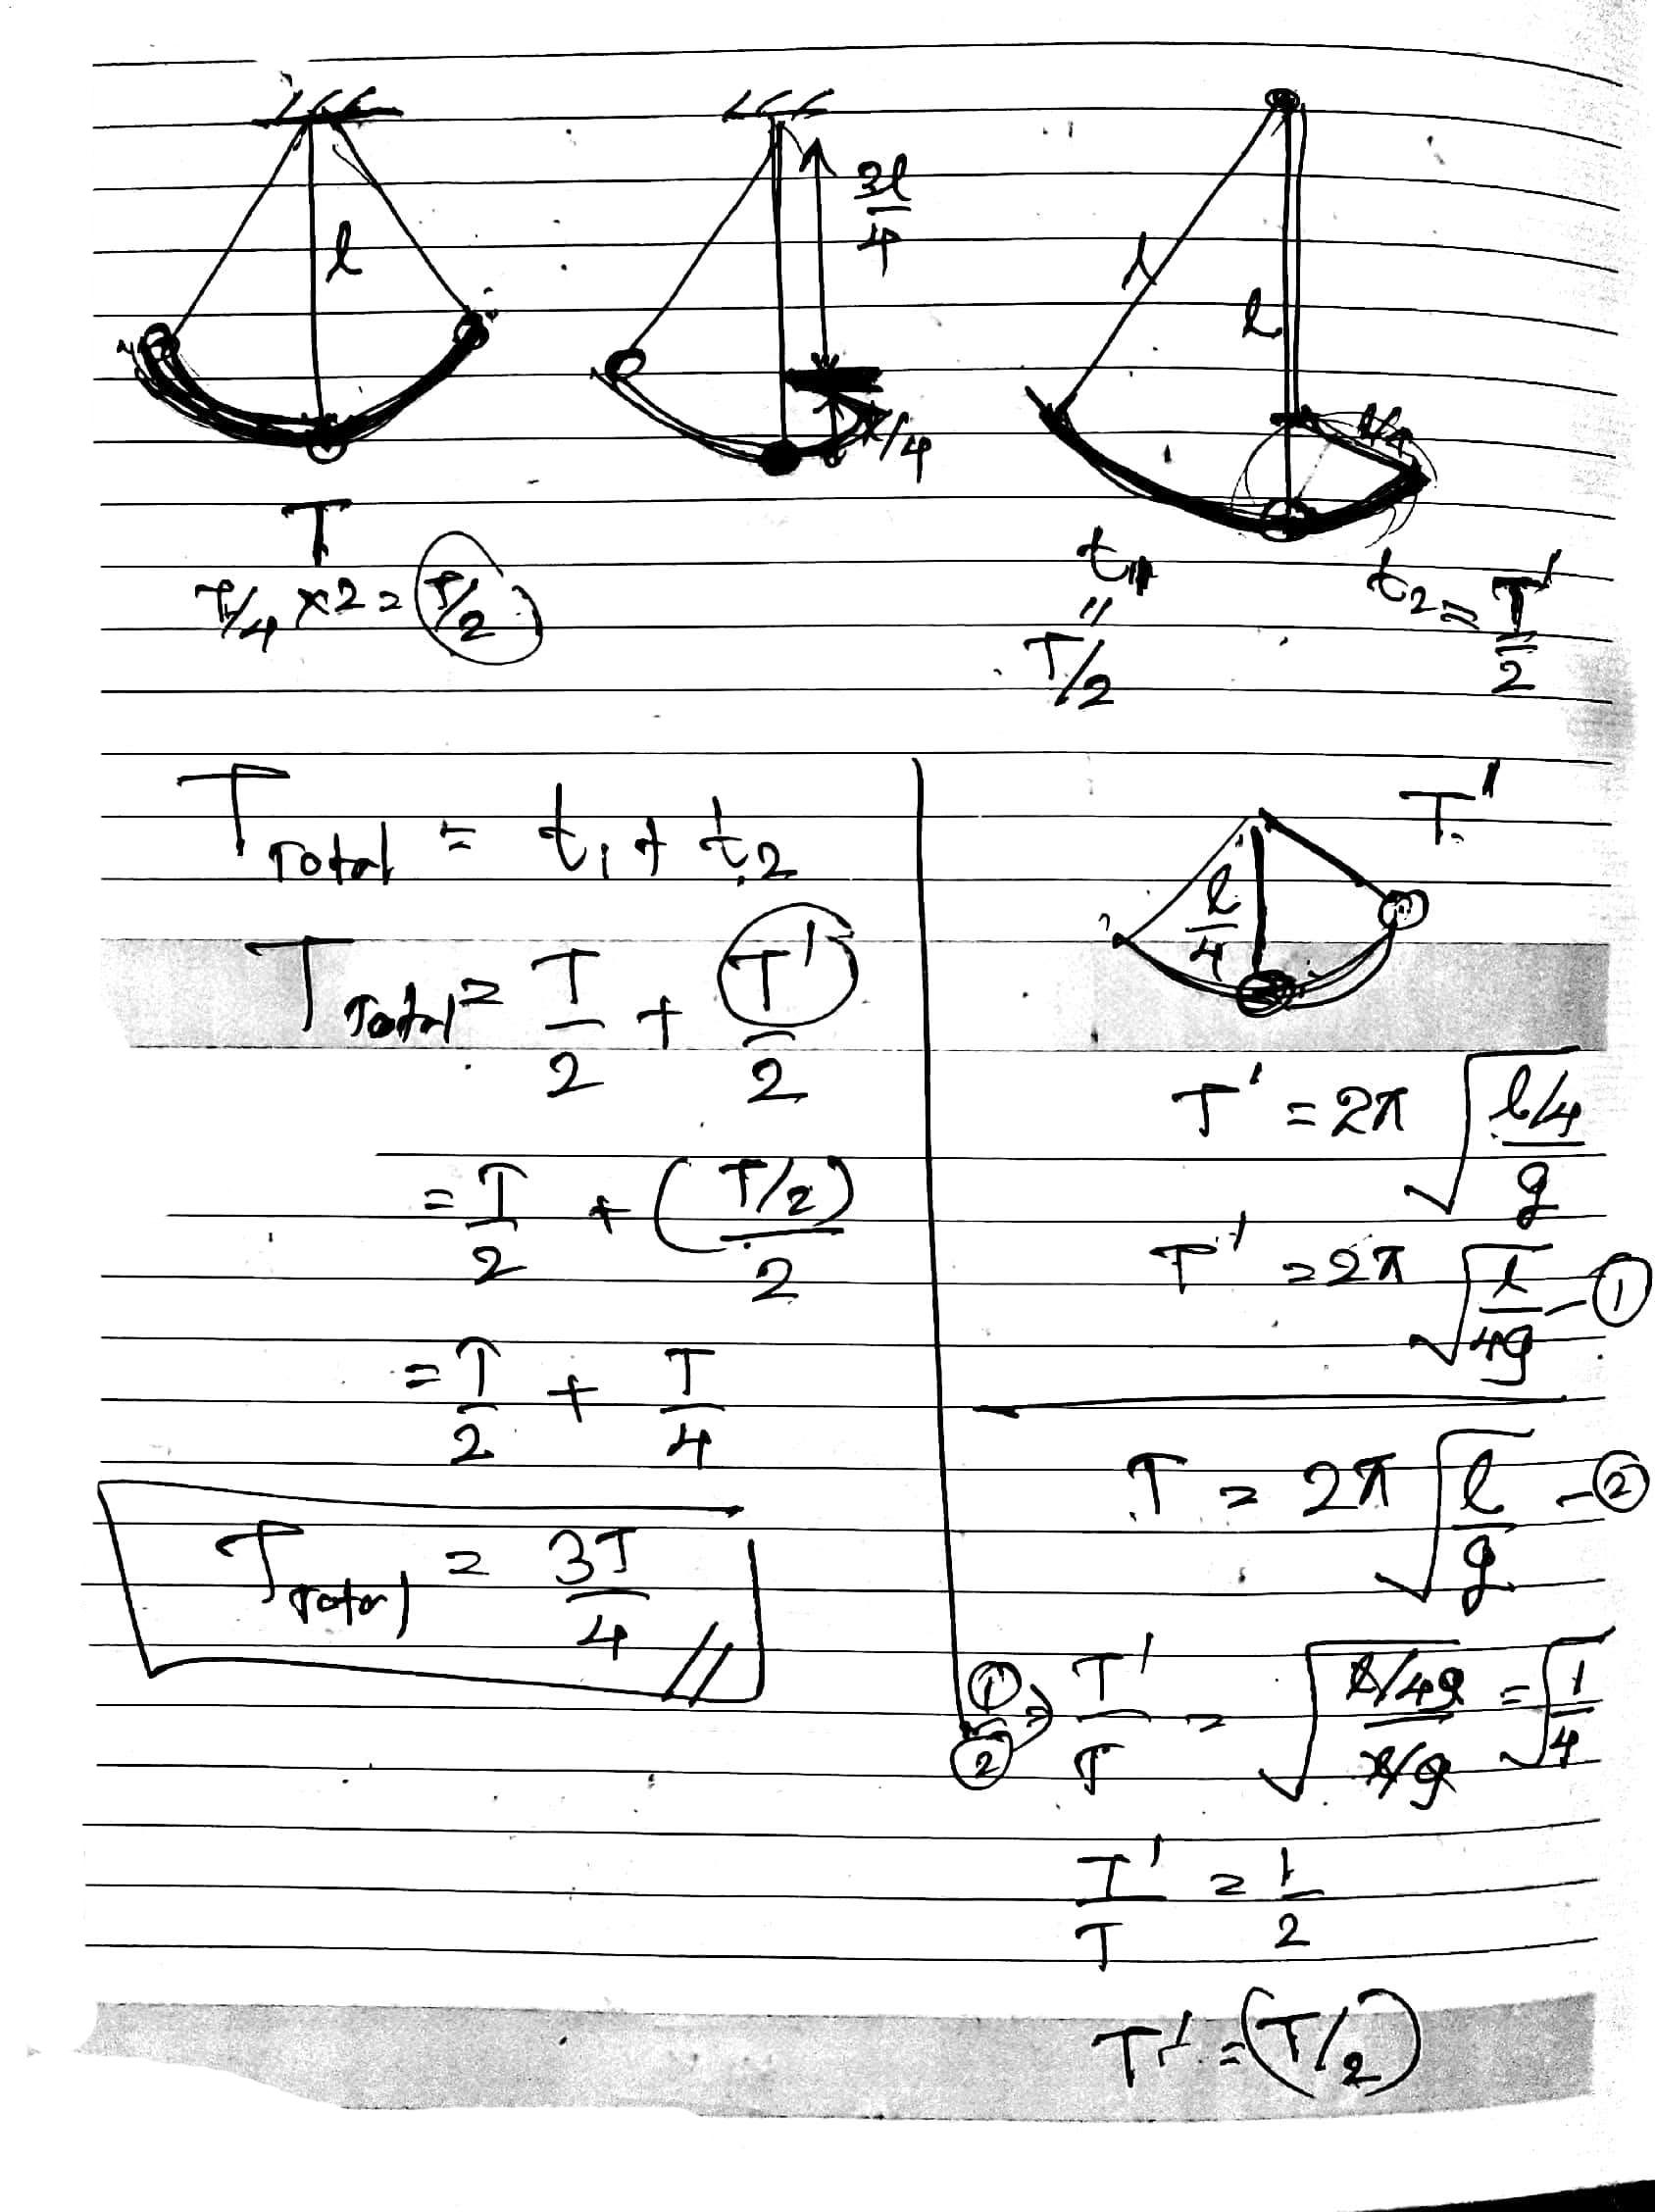 l
3l/4
l/4
l
l
l/4
T
T/4 × 2 = T/2
t1 = T/2
t2 = T'/2
T Total = t1 + t2
T Total = T/2 + T'/2
= T/2 + (T/2)/2
= T/2 + T/4
T Total = 3T/4 //
T'
l/4
T' = 2π √(l/4 / g)
T' = 2π √(l/4g) - ①
T = 2π √(l/g) - ②
①/② ⇒ T'/T = √(l/4g / l/g) = √(1/4)
T'/T = 1/2
T' = (T/2)